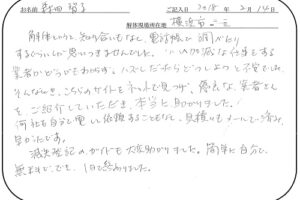 お名前 新田 智子 ご記入日 2018 年 2月 14日
解体現場所在地 横浜市
解体というと、知り合いもなく、電話帳で調べたり
するくらいしか思いつきませんでした。いい加減な仕事をする
業者かどうかもわからず、ハズレだったらどうしようと不安でした。
そんなとき、こちらのサイトをネットで見つけ、優良な業者さん
をご紹介していただき、本当に助かりました!
何社も自分で電話し依頼することもなく、見積りもメールで済み、
早かったです。
滅失登記のガイドも大変助かりました。簡単に自分で、
無料でできて、1日で終わりました。